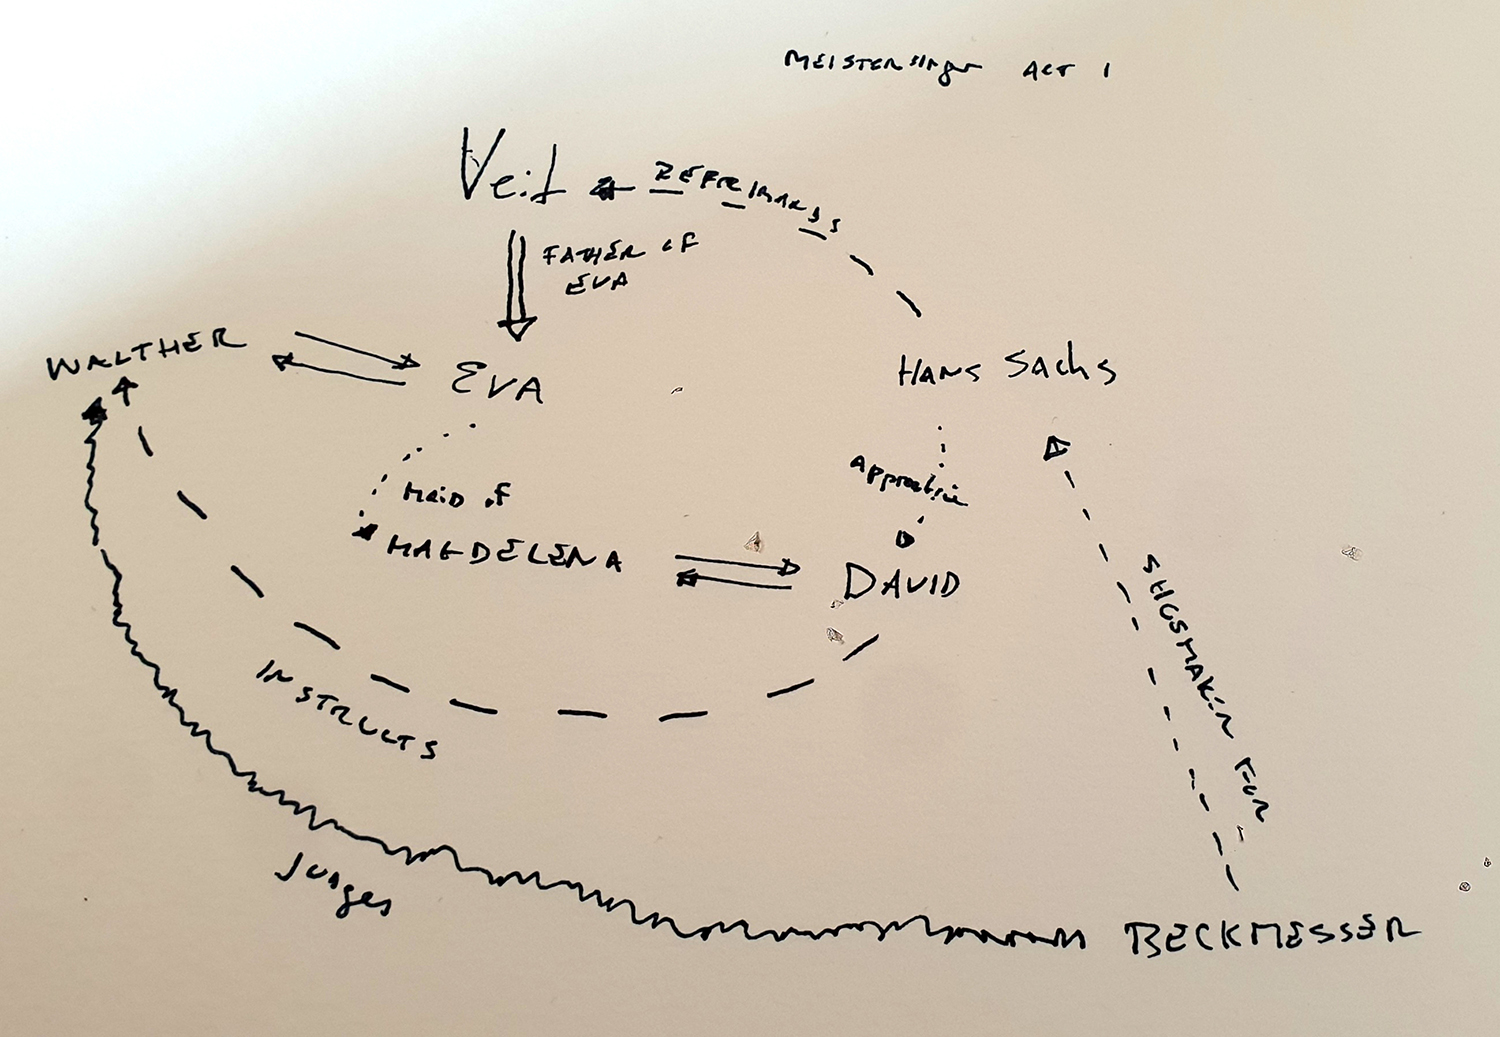 MEISTERsinger ACT 1
Veit
REPRIMANDS
FATHER OF
EVA
WALTHER
EVA
HANS SACHS
Apprentice
MAID OF
MAGDELENA
DAVID
SHOSMAKER FOR
INSTRUCTS
Judges
BECKMESSER